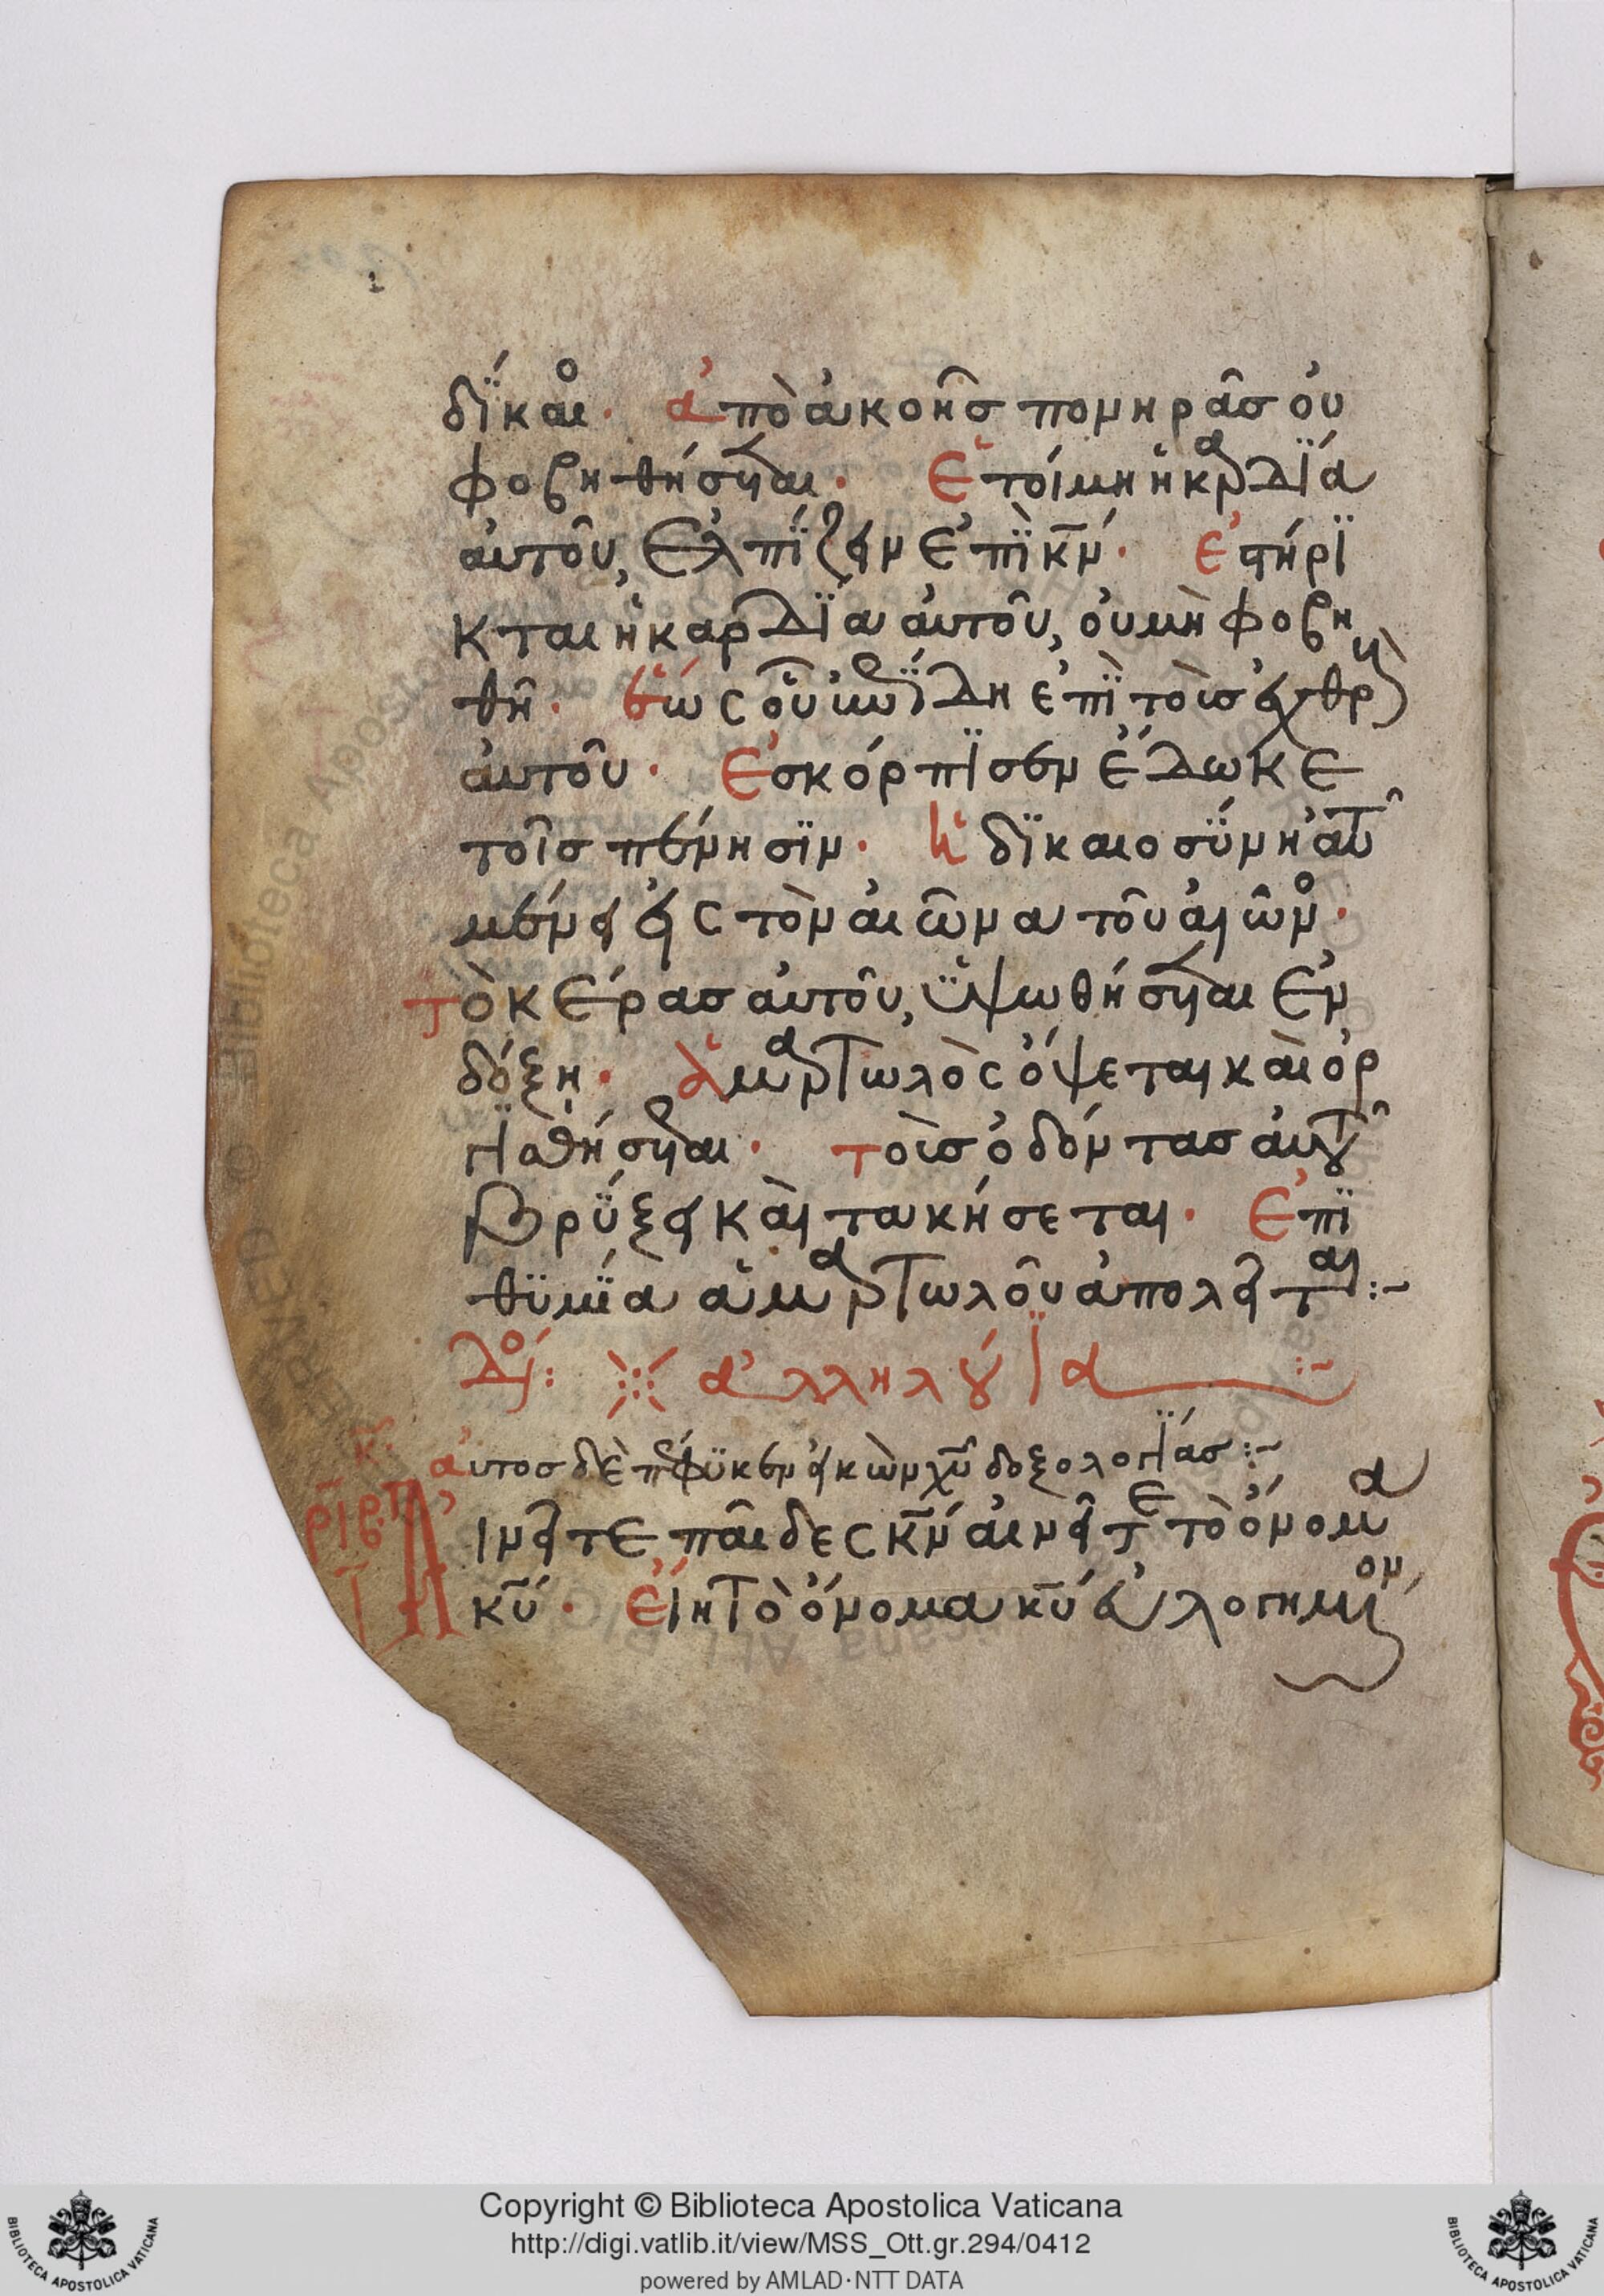 δίκαιο· ἀπὸ ἀκοῆς πονηρᾶς οὐ
φοβηθήσεται· ἑτοίμη ἡ καρδΐα
αὐτοῦ, ἐλπίζειν ἐπῒ κ̅ν· ἐστήρϊ
κται ἡ καρδΐα αὐτοῦ, οὐ μὴ φοβη
θῆ· ἕως οὗ ἐπΐδη ἐπῒ τοὺς ἐχθροὺς
αὐτοῦ· ἐσκόρπϊσεν ἔδωκε
τοῖς πένησϊν· ἡ δϊκαιοσΰνη αὐτοῦ
μένει εἰς τὸν αἰῶνα τοῦ αἰῶνο·
τὸ κέρας αὐτοῦ, ὑψωθήσεται ἐν
δόξη· ἁμαρτωλὸς ὄψεται καὶ ὀρ
γϊσθήσεται· τοὺς ὀδόντας αὐτοῦ
βρΰξει καὶ τακήσεται· ἐπϊ
θϋμΐα ἁμαρτωλοῦ ἀπολεῖται:~
Δό: ἀλληλούϊα :~
αὐτὸς δὲ πέφϋκεν εἰκὼν χ̅υ δοξολογΐας:~
ρ̅ι̅β̅ Αἰνεῖτε, παῖδες κ̅ν αἰνεῖτε τὸ ὄνομα
κ̅υ· εἴη τὸ ὄνομα κ̅υ εὐλογημένον
Copyright © Biblioteca Apostolica Vaticana
http://digi.vatlib.it/view/MSS_Ott.gr.294/0412
powered by AMLAD·NTT DATA
BIBLIOTECA APOSTOLICA VATICANA
BIBLIOTECA APOSTOLICA VATICANA